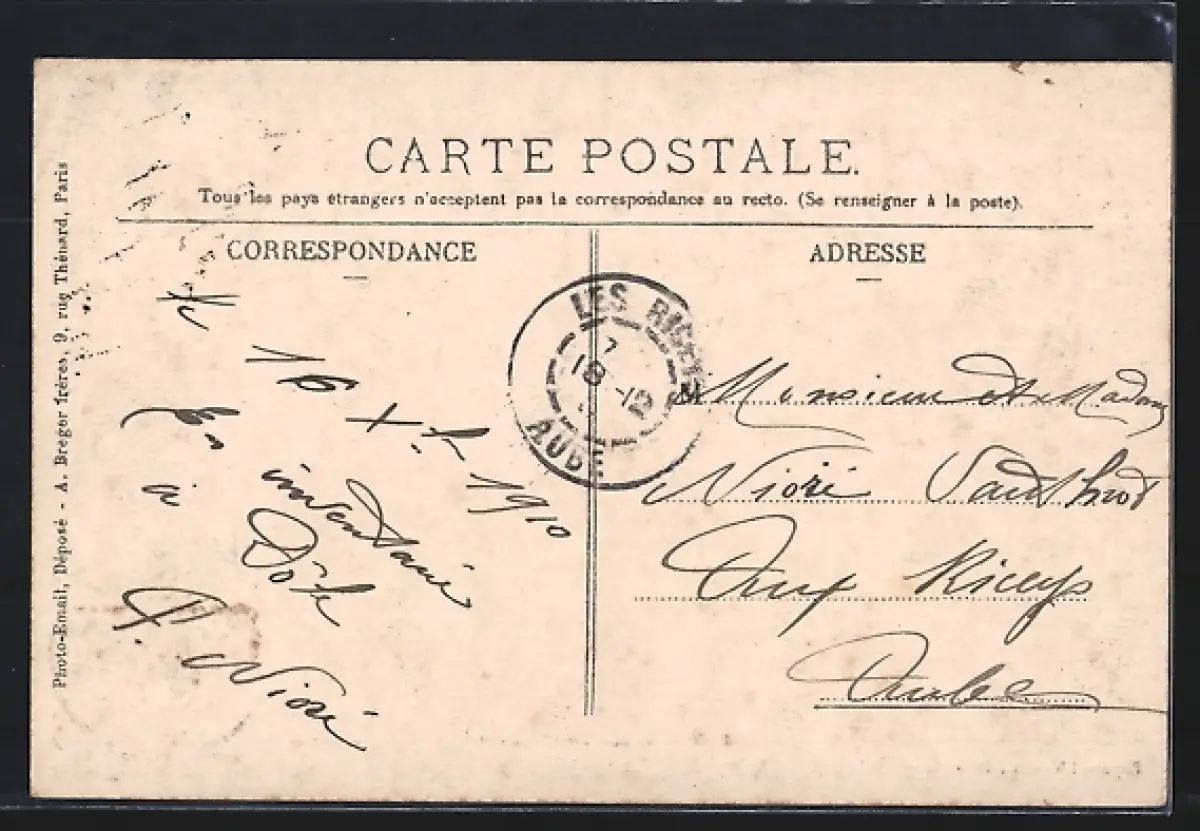 CARTE POSTALE.
Tous les pays étrangers n'acceptent pas la correspondance au recto. (Se renseigner à la poste).
CORRESPONDANCE
le
16 Xbr 1910
En
à
Dôle
P. Nioré
ADRESSE
Monsieur et Madame
Nioré
Aux Riceys
Aube
LES RICEYS
7
18 -12
AUBE
Photo-Email, Déposé - A. Breger frères, 9, rue Thénard, Paris